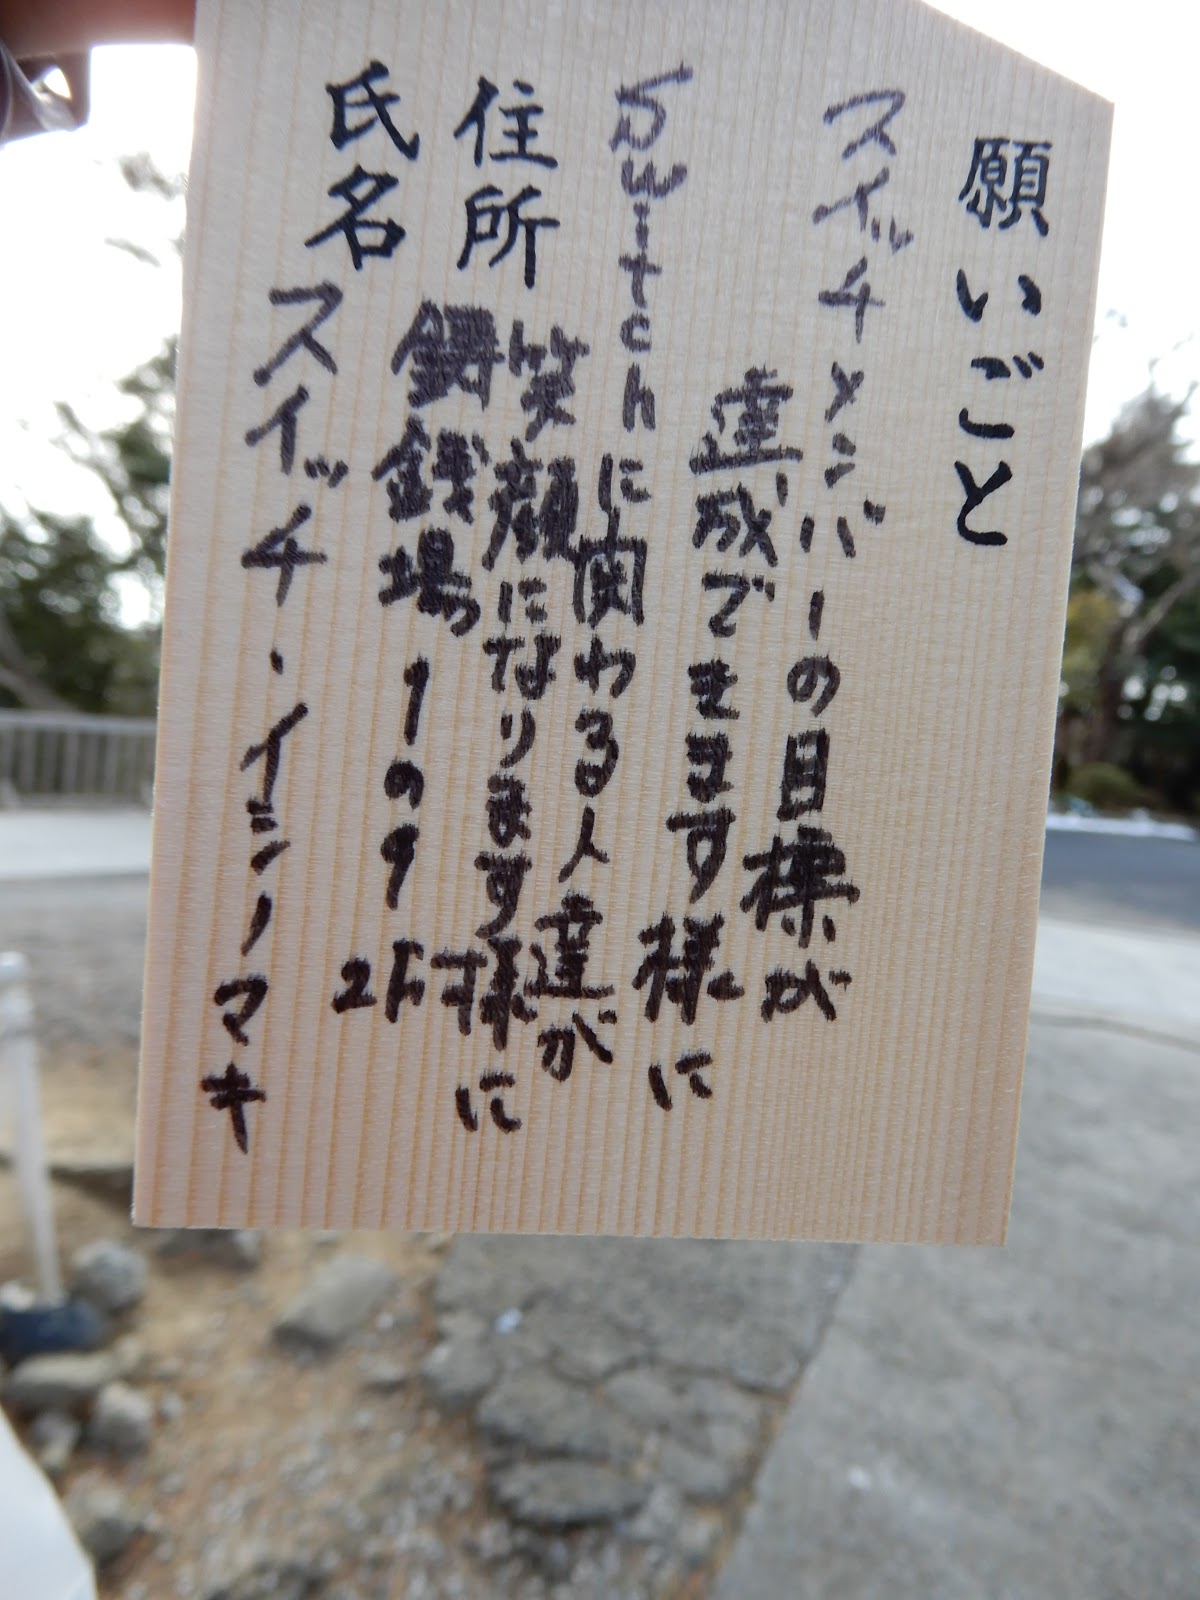 願いごと
スイッチメンバーの目標が
達成できます様に
Switchに関わる人達が
笑顔になります様に
住所 鋳銭場1の9 2F
氏名 スイッチ・イシノマキ